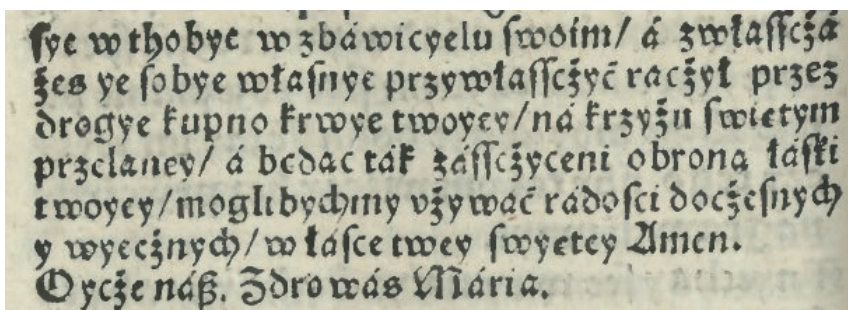 sye w thobye w zbáwicyelu swoim/ á zwłasscżá
żes ye sobye własnye przywłasscżyć racżył przez
drogye kupno krwye twoyey/ná krzyżu swietym
przelaney/ á bedac ták zásscżyceni obroną łáski
twoyey/moglibychmy vżywáć rádosci docżesnych
y wyecżnych/w łásce twey swyetey Amen.
Oycże náß. Zdrowás Mária.